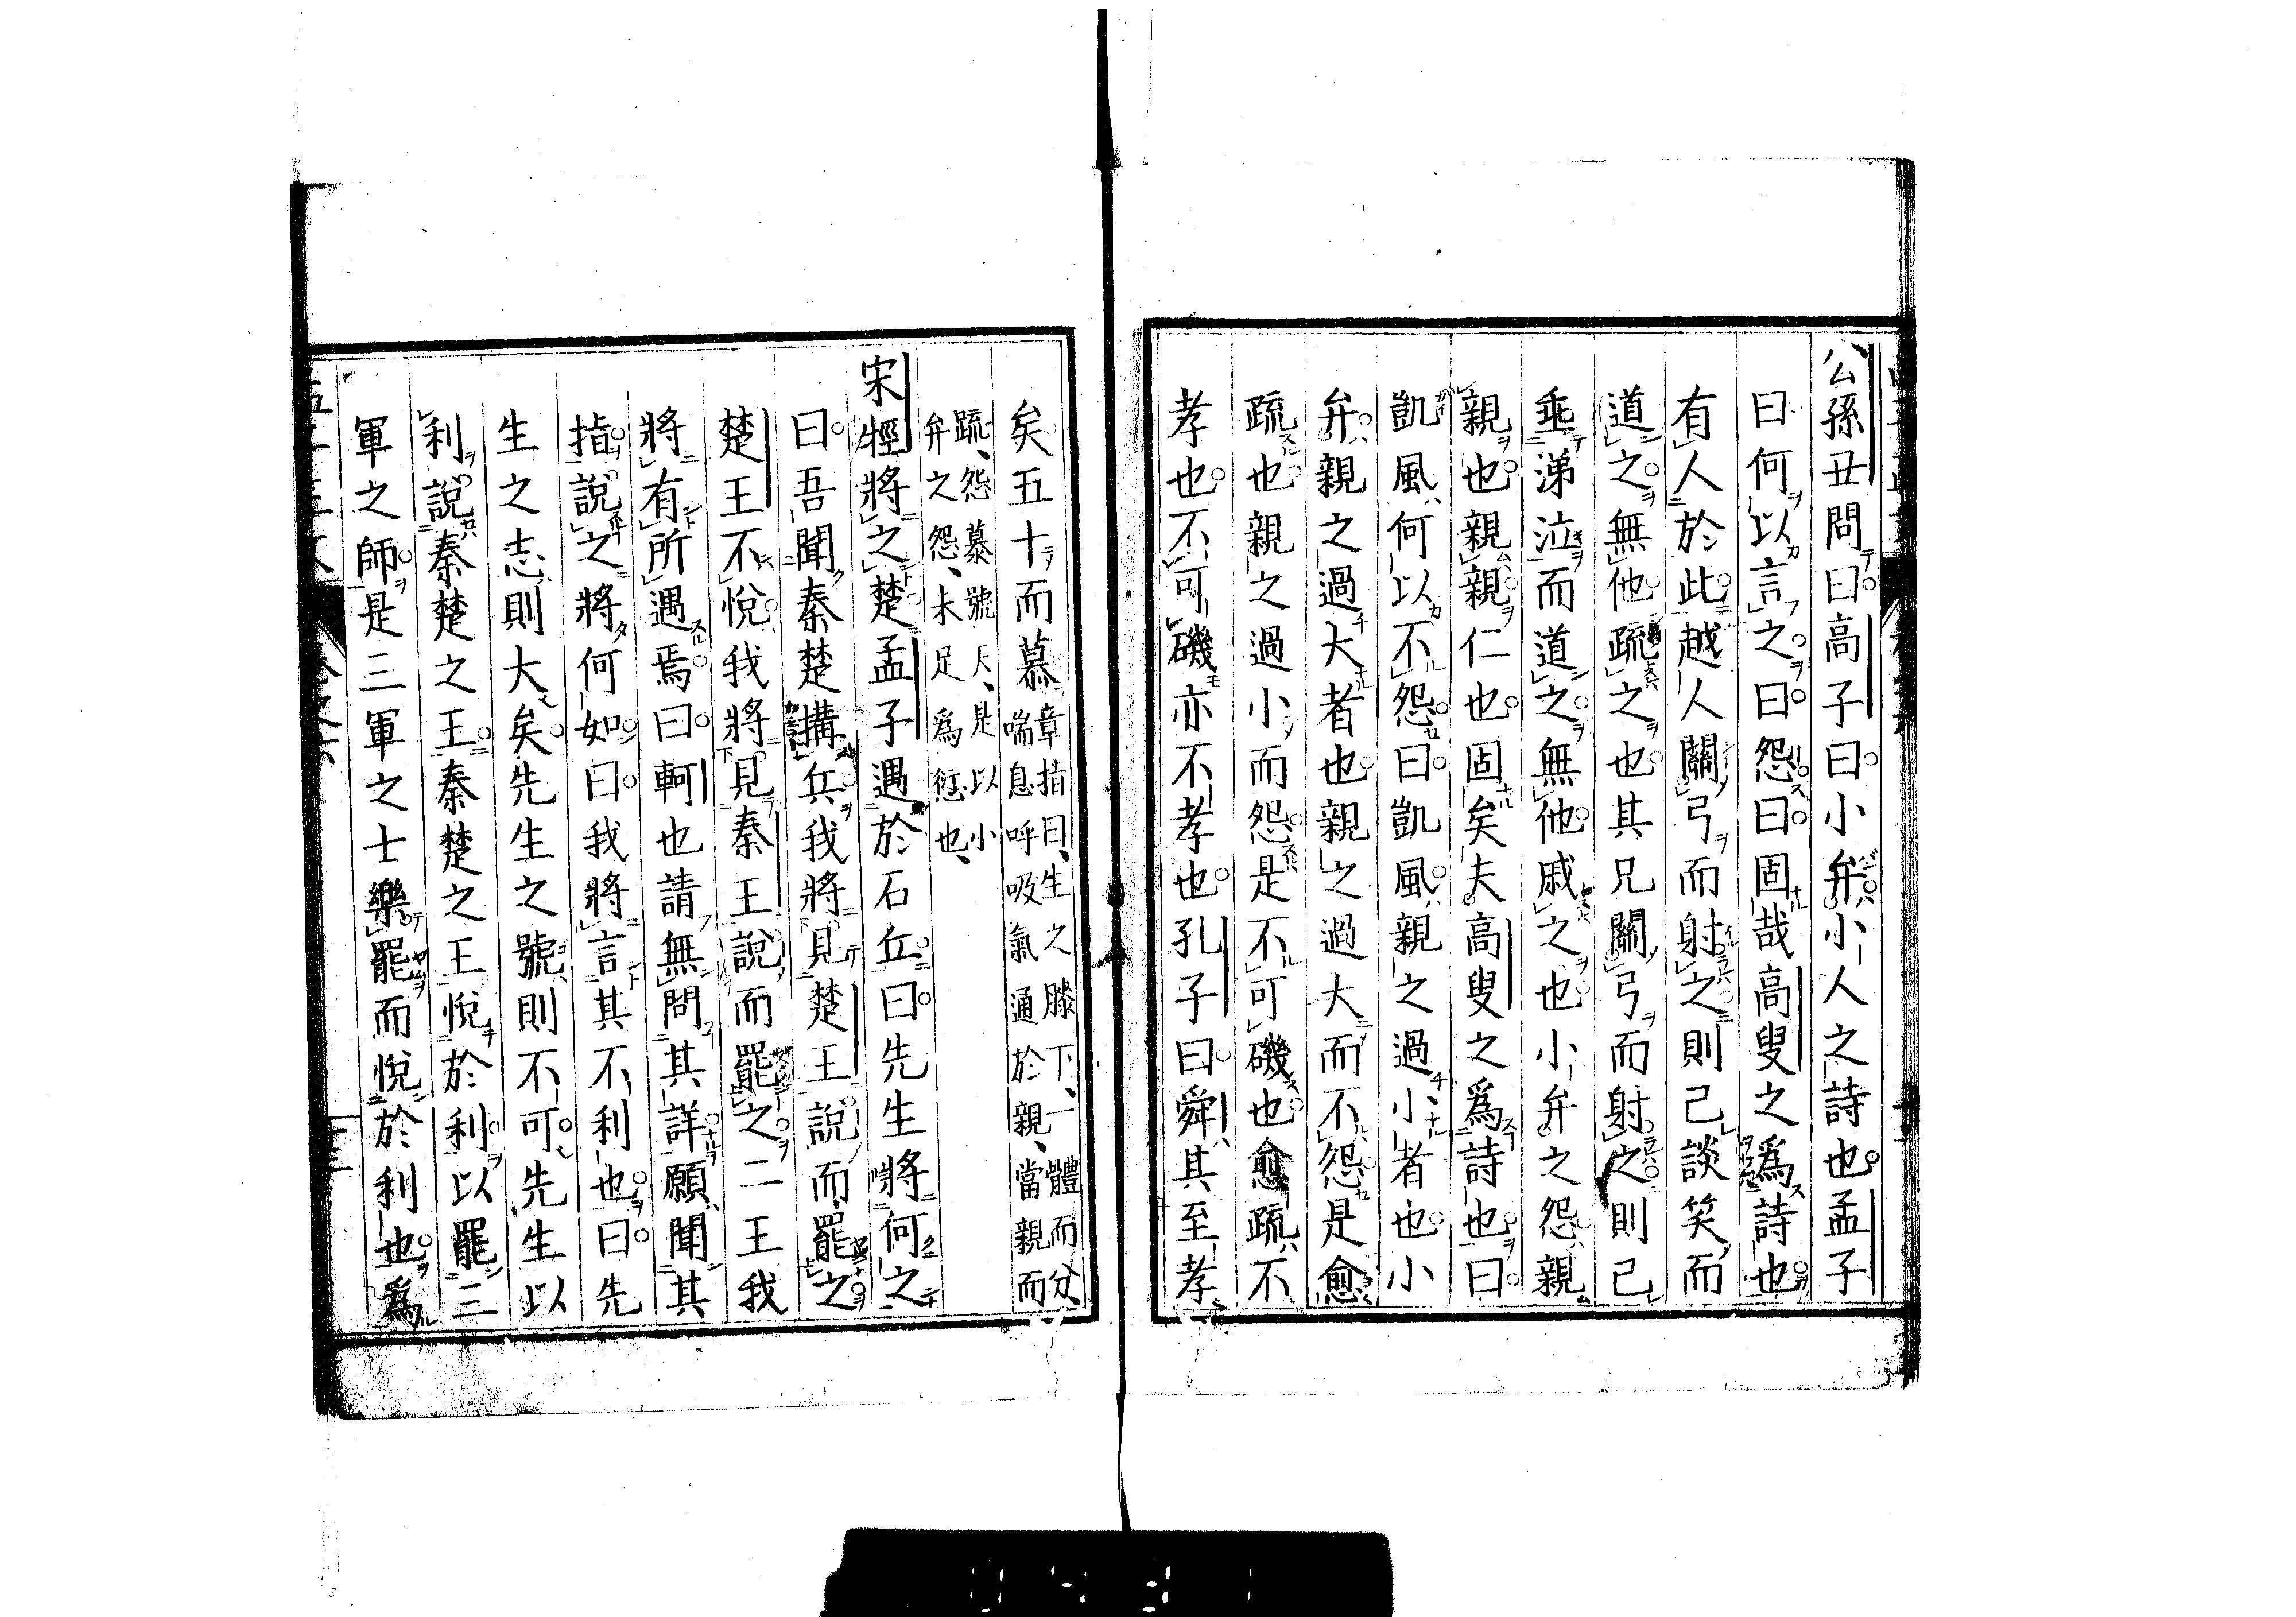 公孫丑問曰高子曰小弁小人之詩也孟子
曰何以言之曰怨曰固哉高叟之爲詩也
有人於此越人關弓而射之則己談笑而
道之無他疏之也其兄關弓而射之則己
垂涕泣而道之無他戚之也小弁之怨親
親也親親仁也固矣夫高叟之爲詩也曰
凱風何以不怨曰凱風親之過小者也小
弁親之過大者也親之過大而不怨是愈
疏也親之過小而怨是不可磯也愈疏不
孝也不可磯亦不孝也孔子曰舜其至孝
矣五十而慕章指曰、生之膝下、一體而分、
喘息呼吸氣通於親、當親而
疏、怨慕號天、是以小
弁之怨、未足爲愆也、
宋牼將之楚孟子遇於石丘曰先生將何之
曰吾聞秦楚搆兵我將見楚王說而罷之
楚王不悅我將見秦王說而罷之二王我
將有所遇焉曰軻也請無問其詳願聞其
指說之將何如曰我將言其不利也曰先
生之志則大矣先生之號則不可先生以
利說秦楚之王秦楚之王悅於利以罷三
軍之師是三軍之士樂罷而悅於利也爲